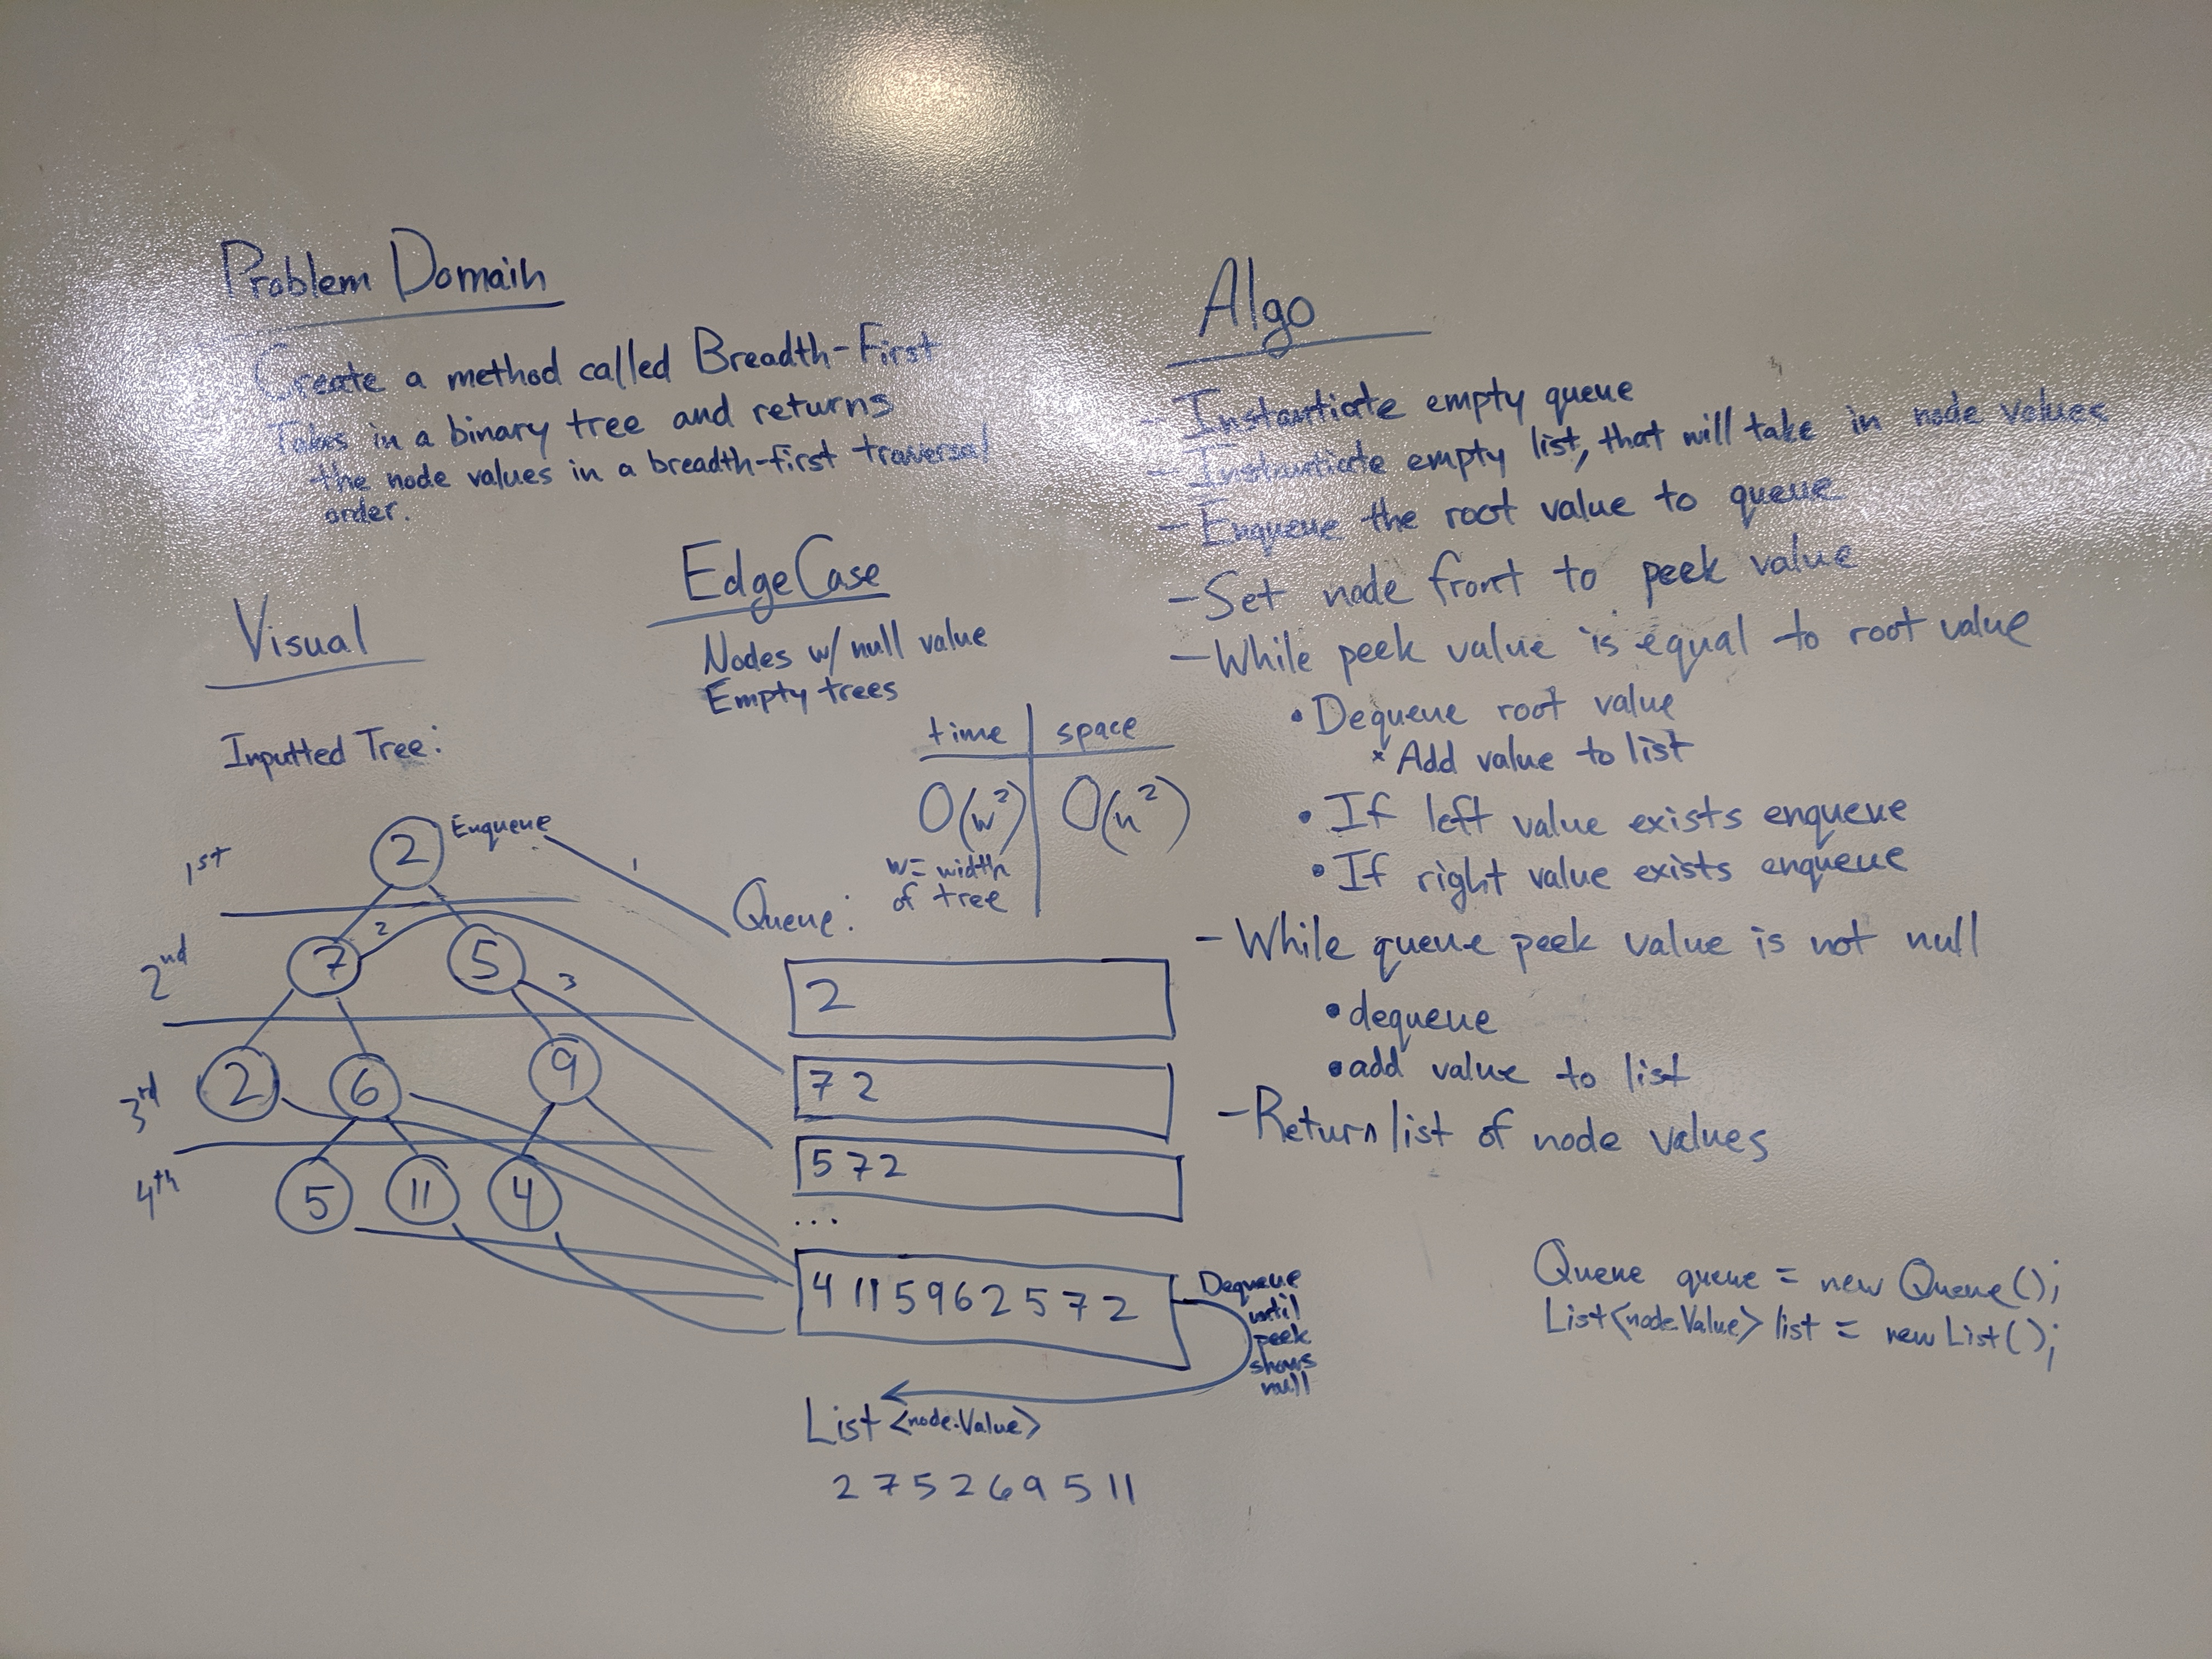 Problem Domain
Create a method called Breadth-First
Takes in a binary tree and returns
the node values in a breadth-first traversal
order.
Edge Case
Nodes w/ null value
Empty trees
Visual
Inputted Tree:
time space
O(w²) O(n²)
w = width
of tree
1st
2 Enqueue 1
2nd
7 2 5 3
3rd
2 6 9
4th
5 11 4
Queue:
2
7 2
5 7 2
...
4 11 5 9 6 2 5 7 2
Dequeue
until
peek
shows
null
List <node.Value>
2 7 5 2 6 9 5 11
Algo
- Instantiate empty queue
- Instantiate empty list, that will take in node values
- Enqueue the root value to queue
- Set node front to peek value
- While peek value is equal to root value
• Dequeue root value
* Add value to list
• If left value exists enqueue
• If right value exists enqueue
- While queue peek value is not null
• dequeue
• add value to list
- Return list of node values
Queue queue = new Queue();
List<node.Value> list = new List();